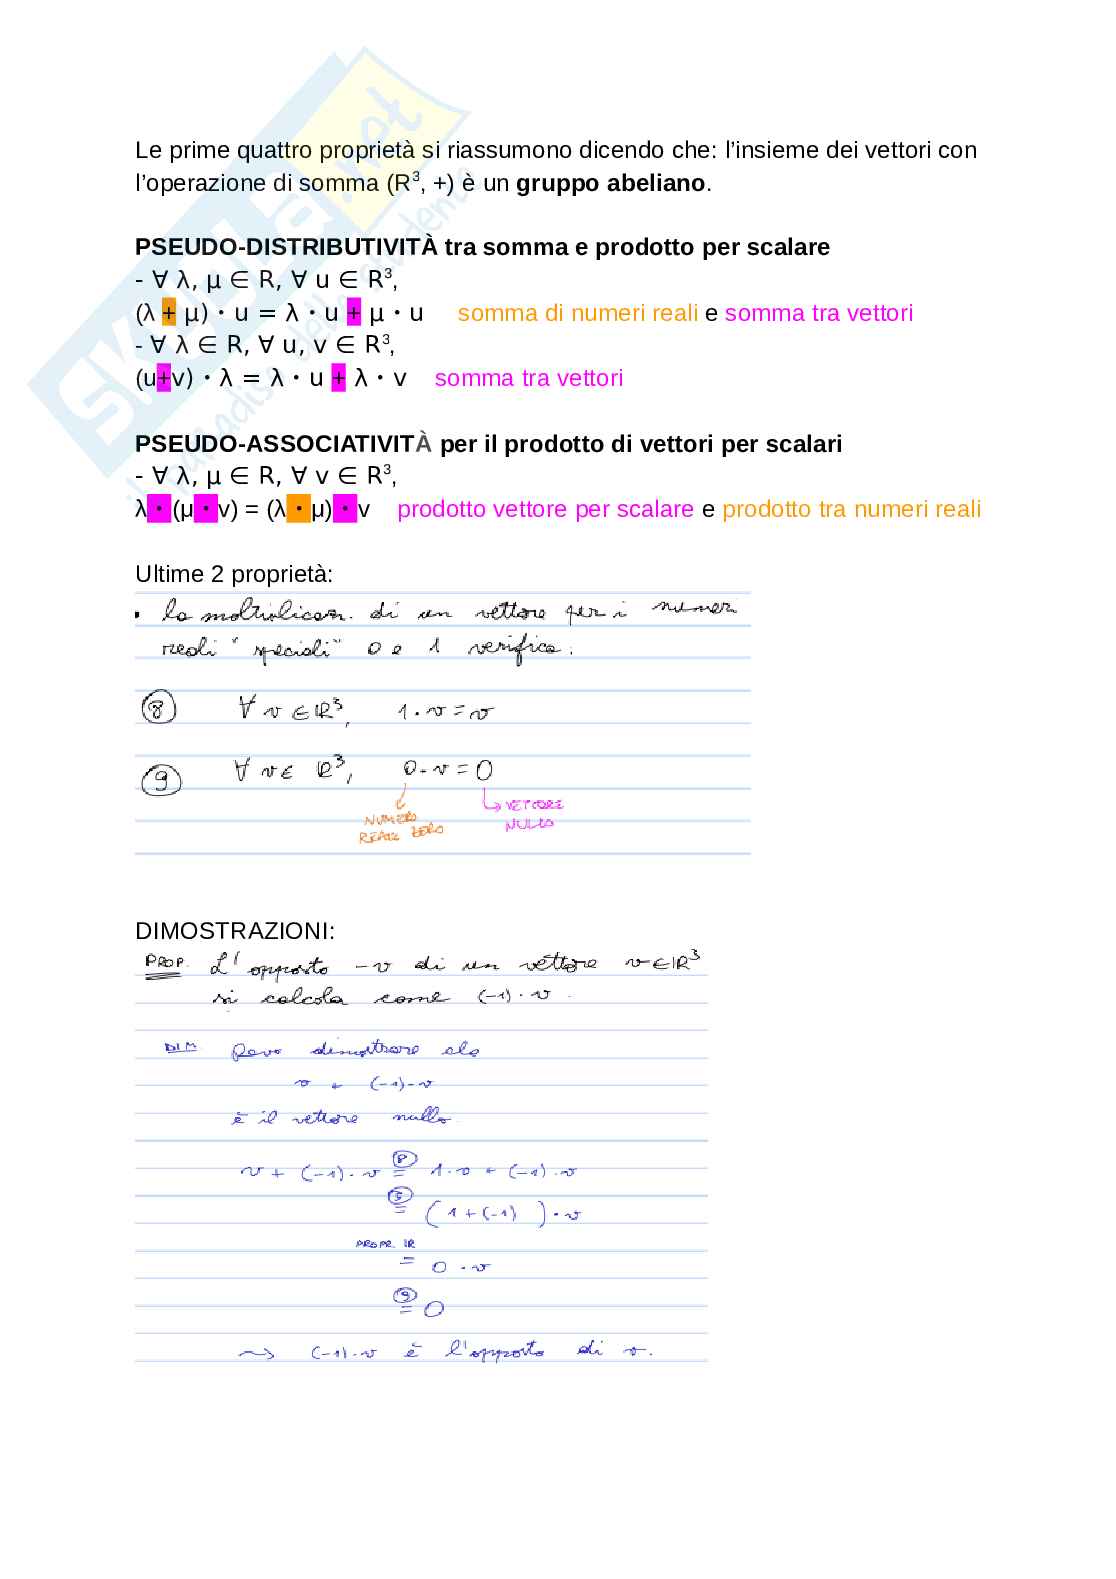 Le prime quattro proprietà si riassumono dicendo che: l’insieme dei vettori con
l’operazione di somma (R³, +) è un gruppo abeliano.
PSEUDO-DISTRIBUTIVITÀ tra somma e prodotto per scalare
- ∀ λ, μ ∈ R, ∀ u ∈ R³,
(λ + μ) · u = λ · u + μ · u somma di numeri reali e somma tra vettori
- ∀ λ ∈ R, ∀ u, v ∈ R³,
(u+v) · λ = λ · u + λ · v somma tra vettori
PSEUDO-ASSOCIATIVITÀ per il prodotto di vettori per scalari
- ∀ λ, μ ∈ R, ∀ v ∈ R³,
λ · (μ · v) = (λ · μ) · v prodotto vettore per scalare e prodotto tra numeri reali
Ultime 2 proprietà:
• la di un vettore per i numeri
reali "speciali" 0 e 1 verifica:
⑧ ∀ v ∈ ℝ³, 1 · v = v
⑨ ∀ v ∈ ℝ³, 0 · v = 0
NUMERO REALE ZERO
VETTORE NULLO
DIMOSTRAZIONI:
PROP. L'opposto -v di un vettore v ∈ ℝ³
si calcola come (-1) · v.
DIM. Devo dimostrare che
v + (-1) · v
è il vettore nullo
v + (-1) · v =⑧ 1 · v + (-1) · v
=⑤ (1 + (-1)) · v
PROPR. ℝ
= 0 · v
=⑨ 0
⇝ (-1) · v è l'opposto di v.
SKUOLA.net
il paradiso dello studente